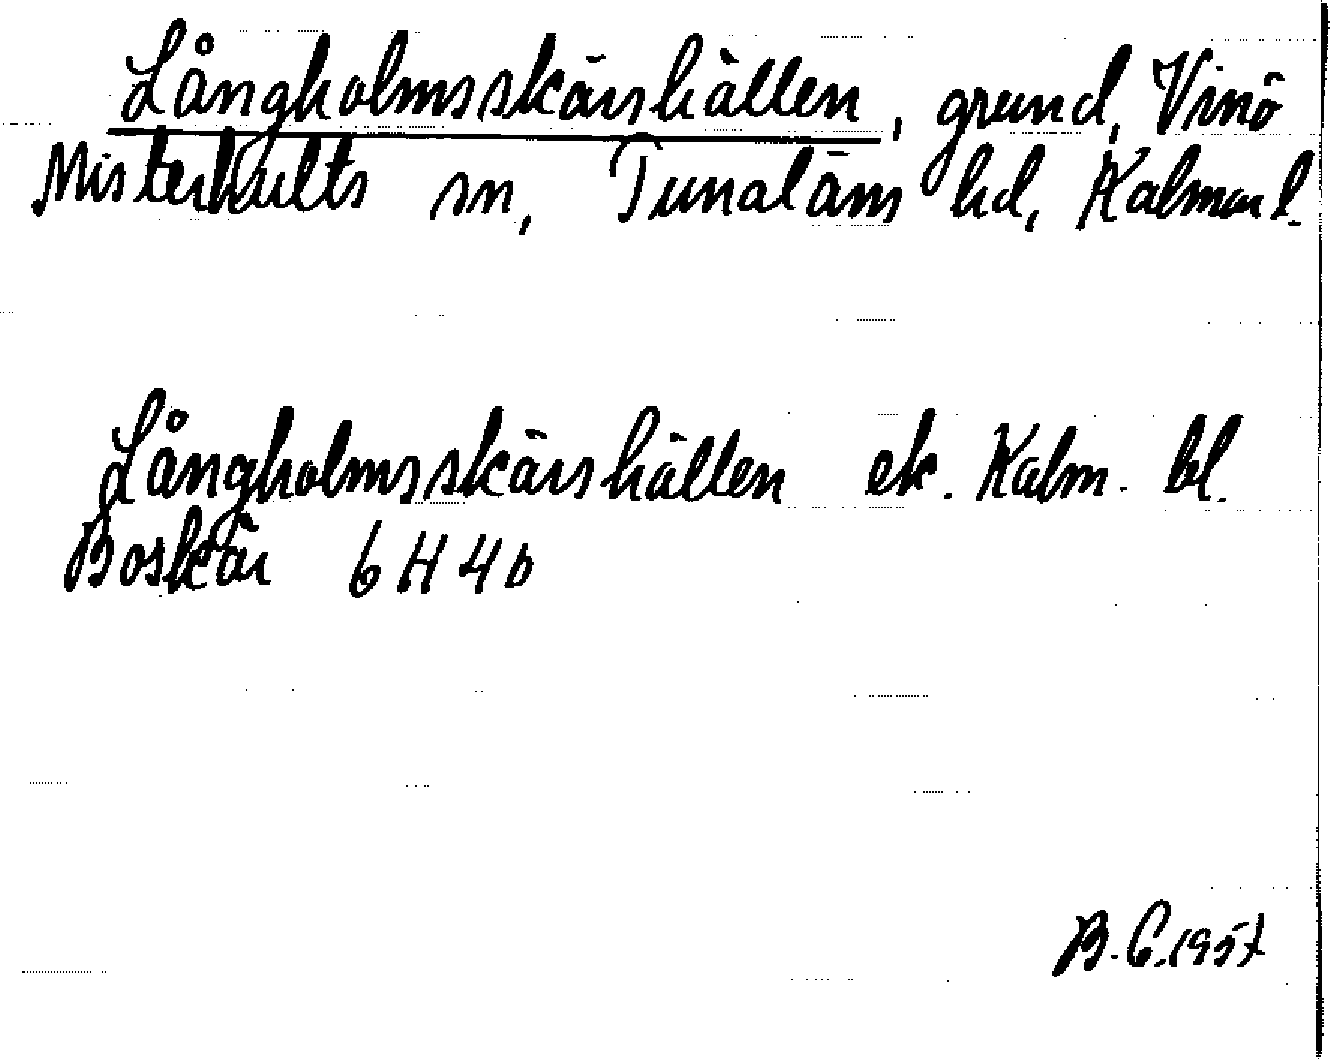 Långholmsskärshällen, grund, Vinö
Misterhults sn, Tunaläns hd, Kalmar l.
Långholmsskärshällen ek. Kalm. bl.
Boskär 6H4b
B.C. 1957